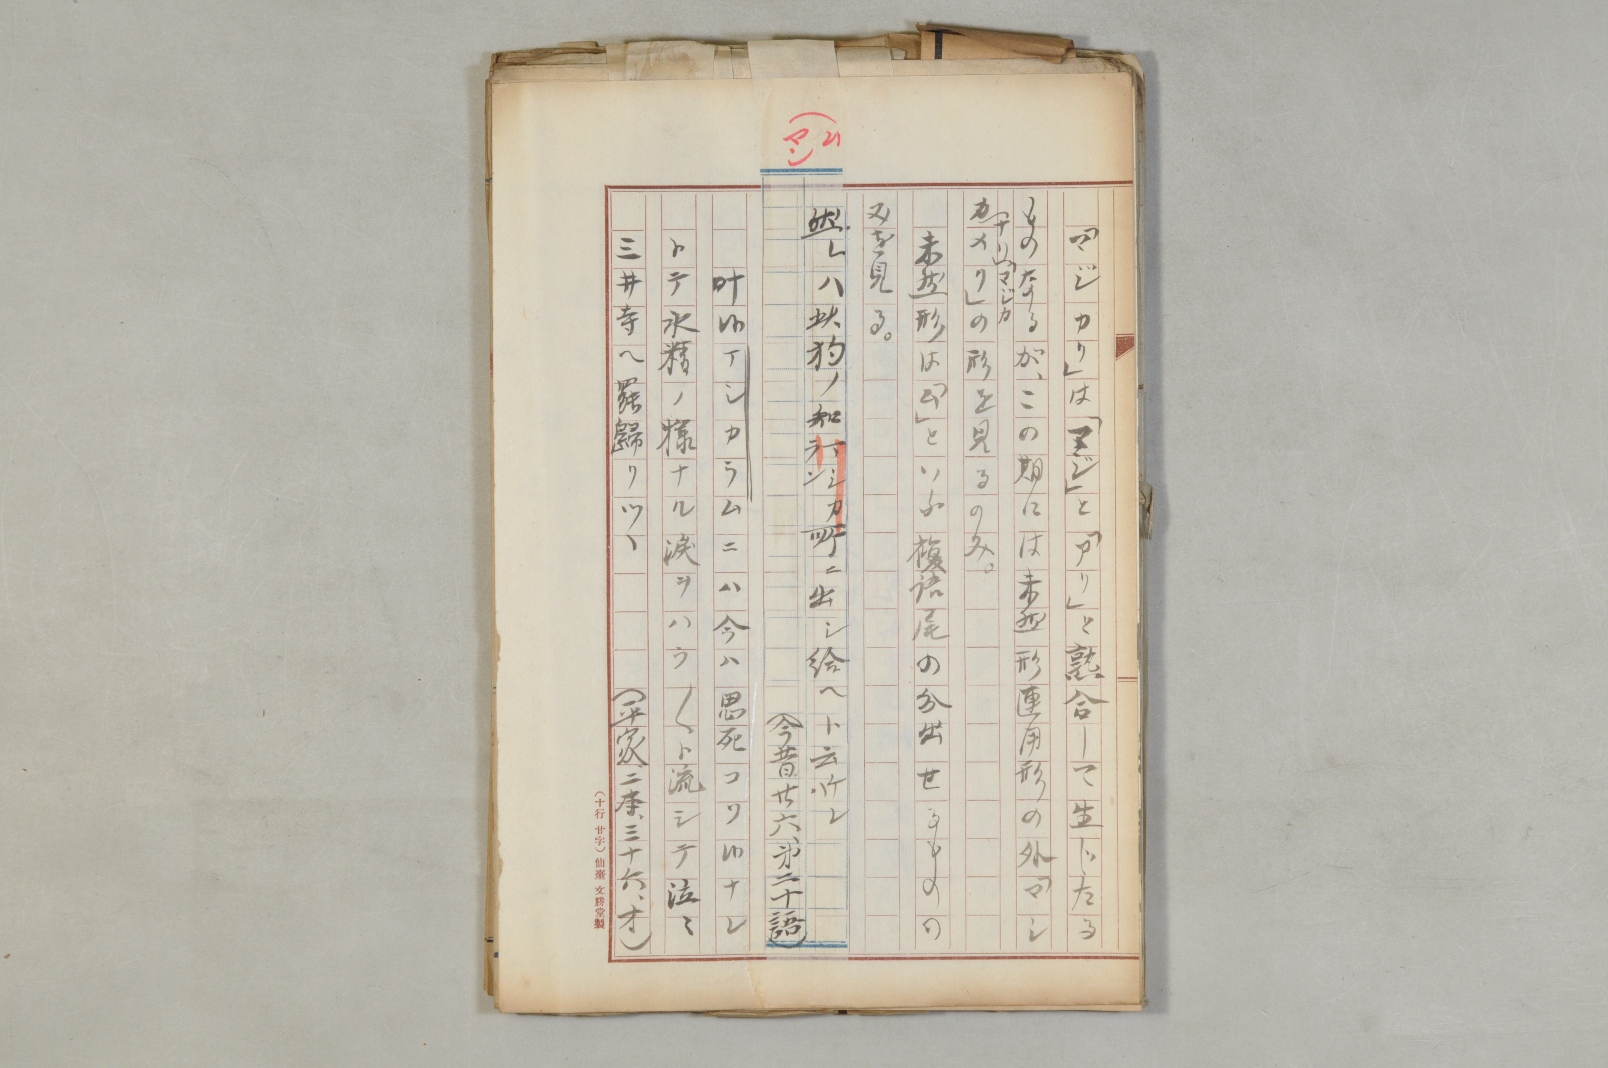 「マジカリ」は「マジ」と「アリ」と熟合して生じたる
ものなるが、この期には未然形連用形の外「マシ
カナリ」「マジカ
カメリ」の形を見るのみ。
未然形は「ム」といふ複語尾の分出せるものゝ
みを見る。
(ム
マシ)
然レハ此狗ノ知
マシカ
ニ出シ給ヘト云ケレ
(今昔廿六、第二十語)
叶ヘシカラムニハ今ハ思死コソ ナレ
トテ水精ノ様ナル涙ヲハウ〳〵ト流シテ泣ミ
三井寺ヘ罷歸リツヽ
(平家、二本、三十六、オ)
(十行 廿字) 仙臺 文勝堂製